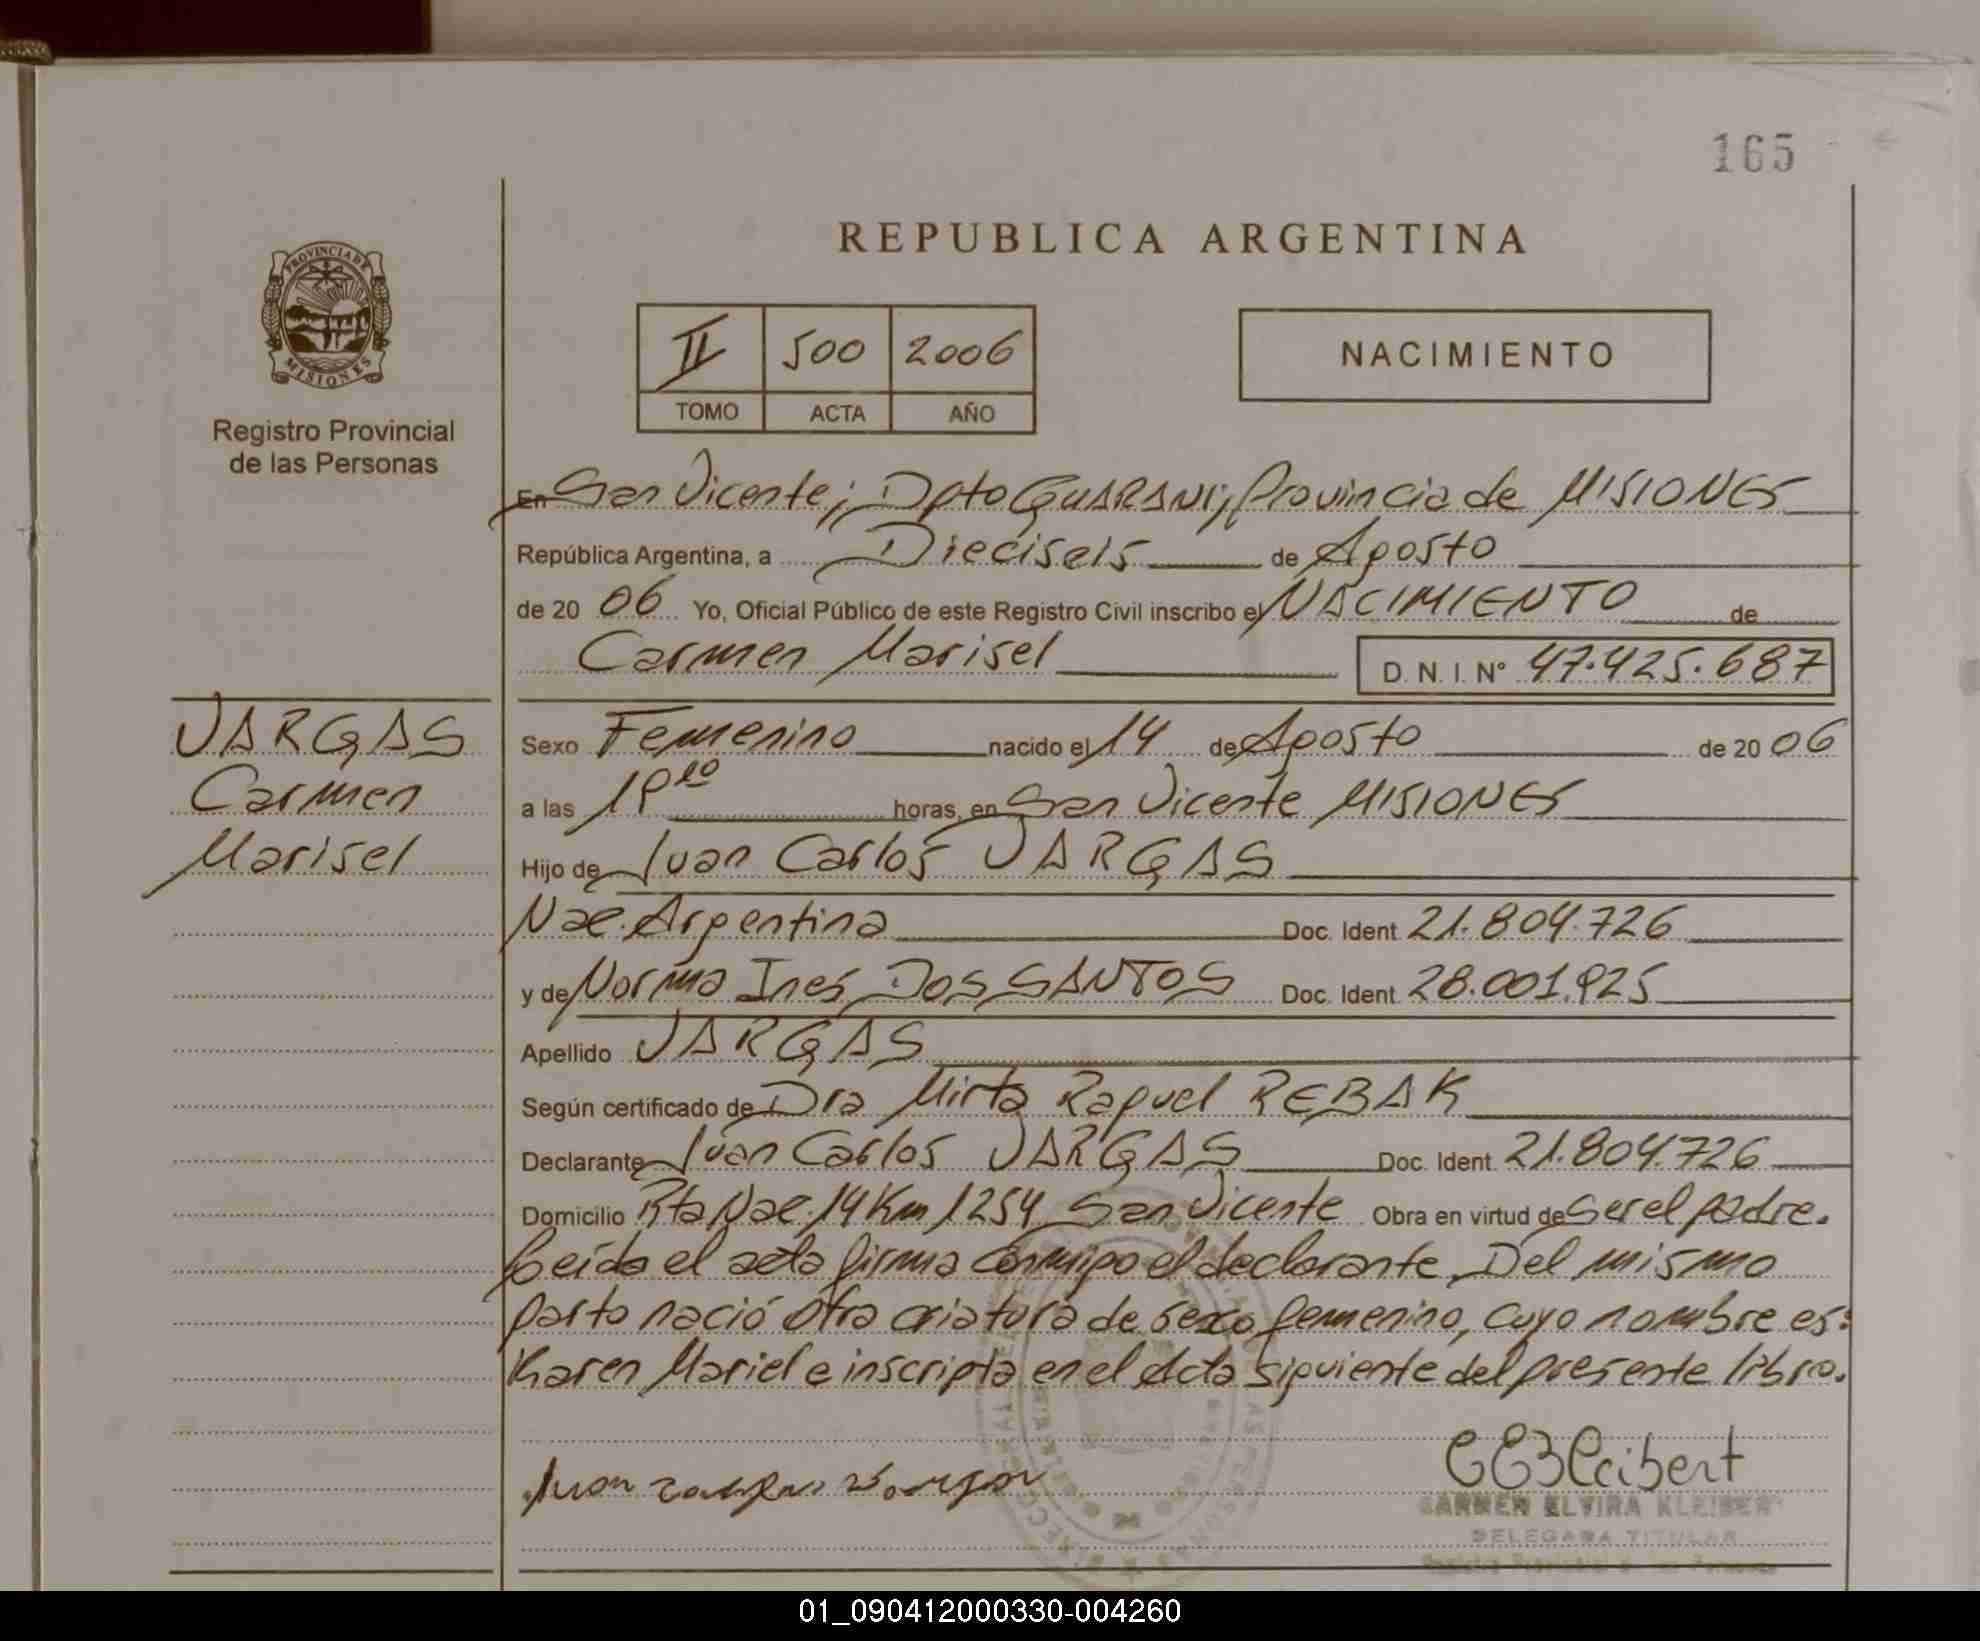 165
REPUBLICA ARGENTINA
PROVINCIA DE
MISIONES
Registro Provincial
de las Personas
II 500 2006
TOMO ACTA AÑO
NACIMIENTO
En San Vicente; Dpto GUARANI; Provincia de MISIONES
República Argentina, a Dieciseis de Agosto
de 20 06 Yo, Oficial Público de este Registro Civil inscribo el NACIMIENTO de
Carmen Marisel D. N. I. N° 47.425.687
VARGAS
Carmen
Marisel
Sexo Femenino nacido el 14 de Agosto de 20 06
a las horas, en San Vicente MISIONES
Hijo de Juan Carlos VARGAS
Nac. Argentina Doc. Ident 21.804.726
y de Norma Ines DOS SANTOS Doc. Ident 28.001.925
Apellido VARGAS
Según certificado de Dra Mirta Raquel REBAK
Declarante Juan Carlos VARGAS Doc. Ident. 21.804.726
Domicilio Rta Nac. 14 Km 1254 San Vicente Obra en virtud de Ser el padre.
Leída el acta firma conmigo el declarante. Del mismo
parto nació otra criatura de sexo femenino, cuyo nombre es:
Karen Mariel e inscripta en el Acta siguiente del presente libro.
CARMEN ELVIRA KLEIBERT
DELEGADA TITULAR
01_090412000330-004260